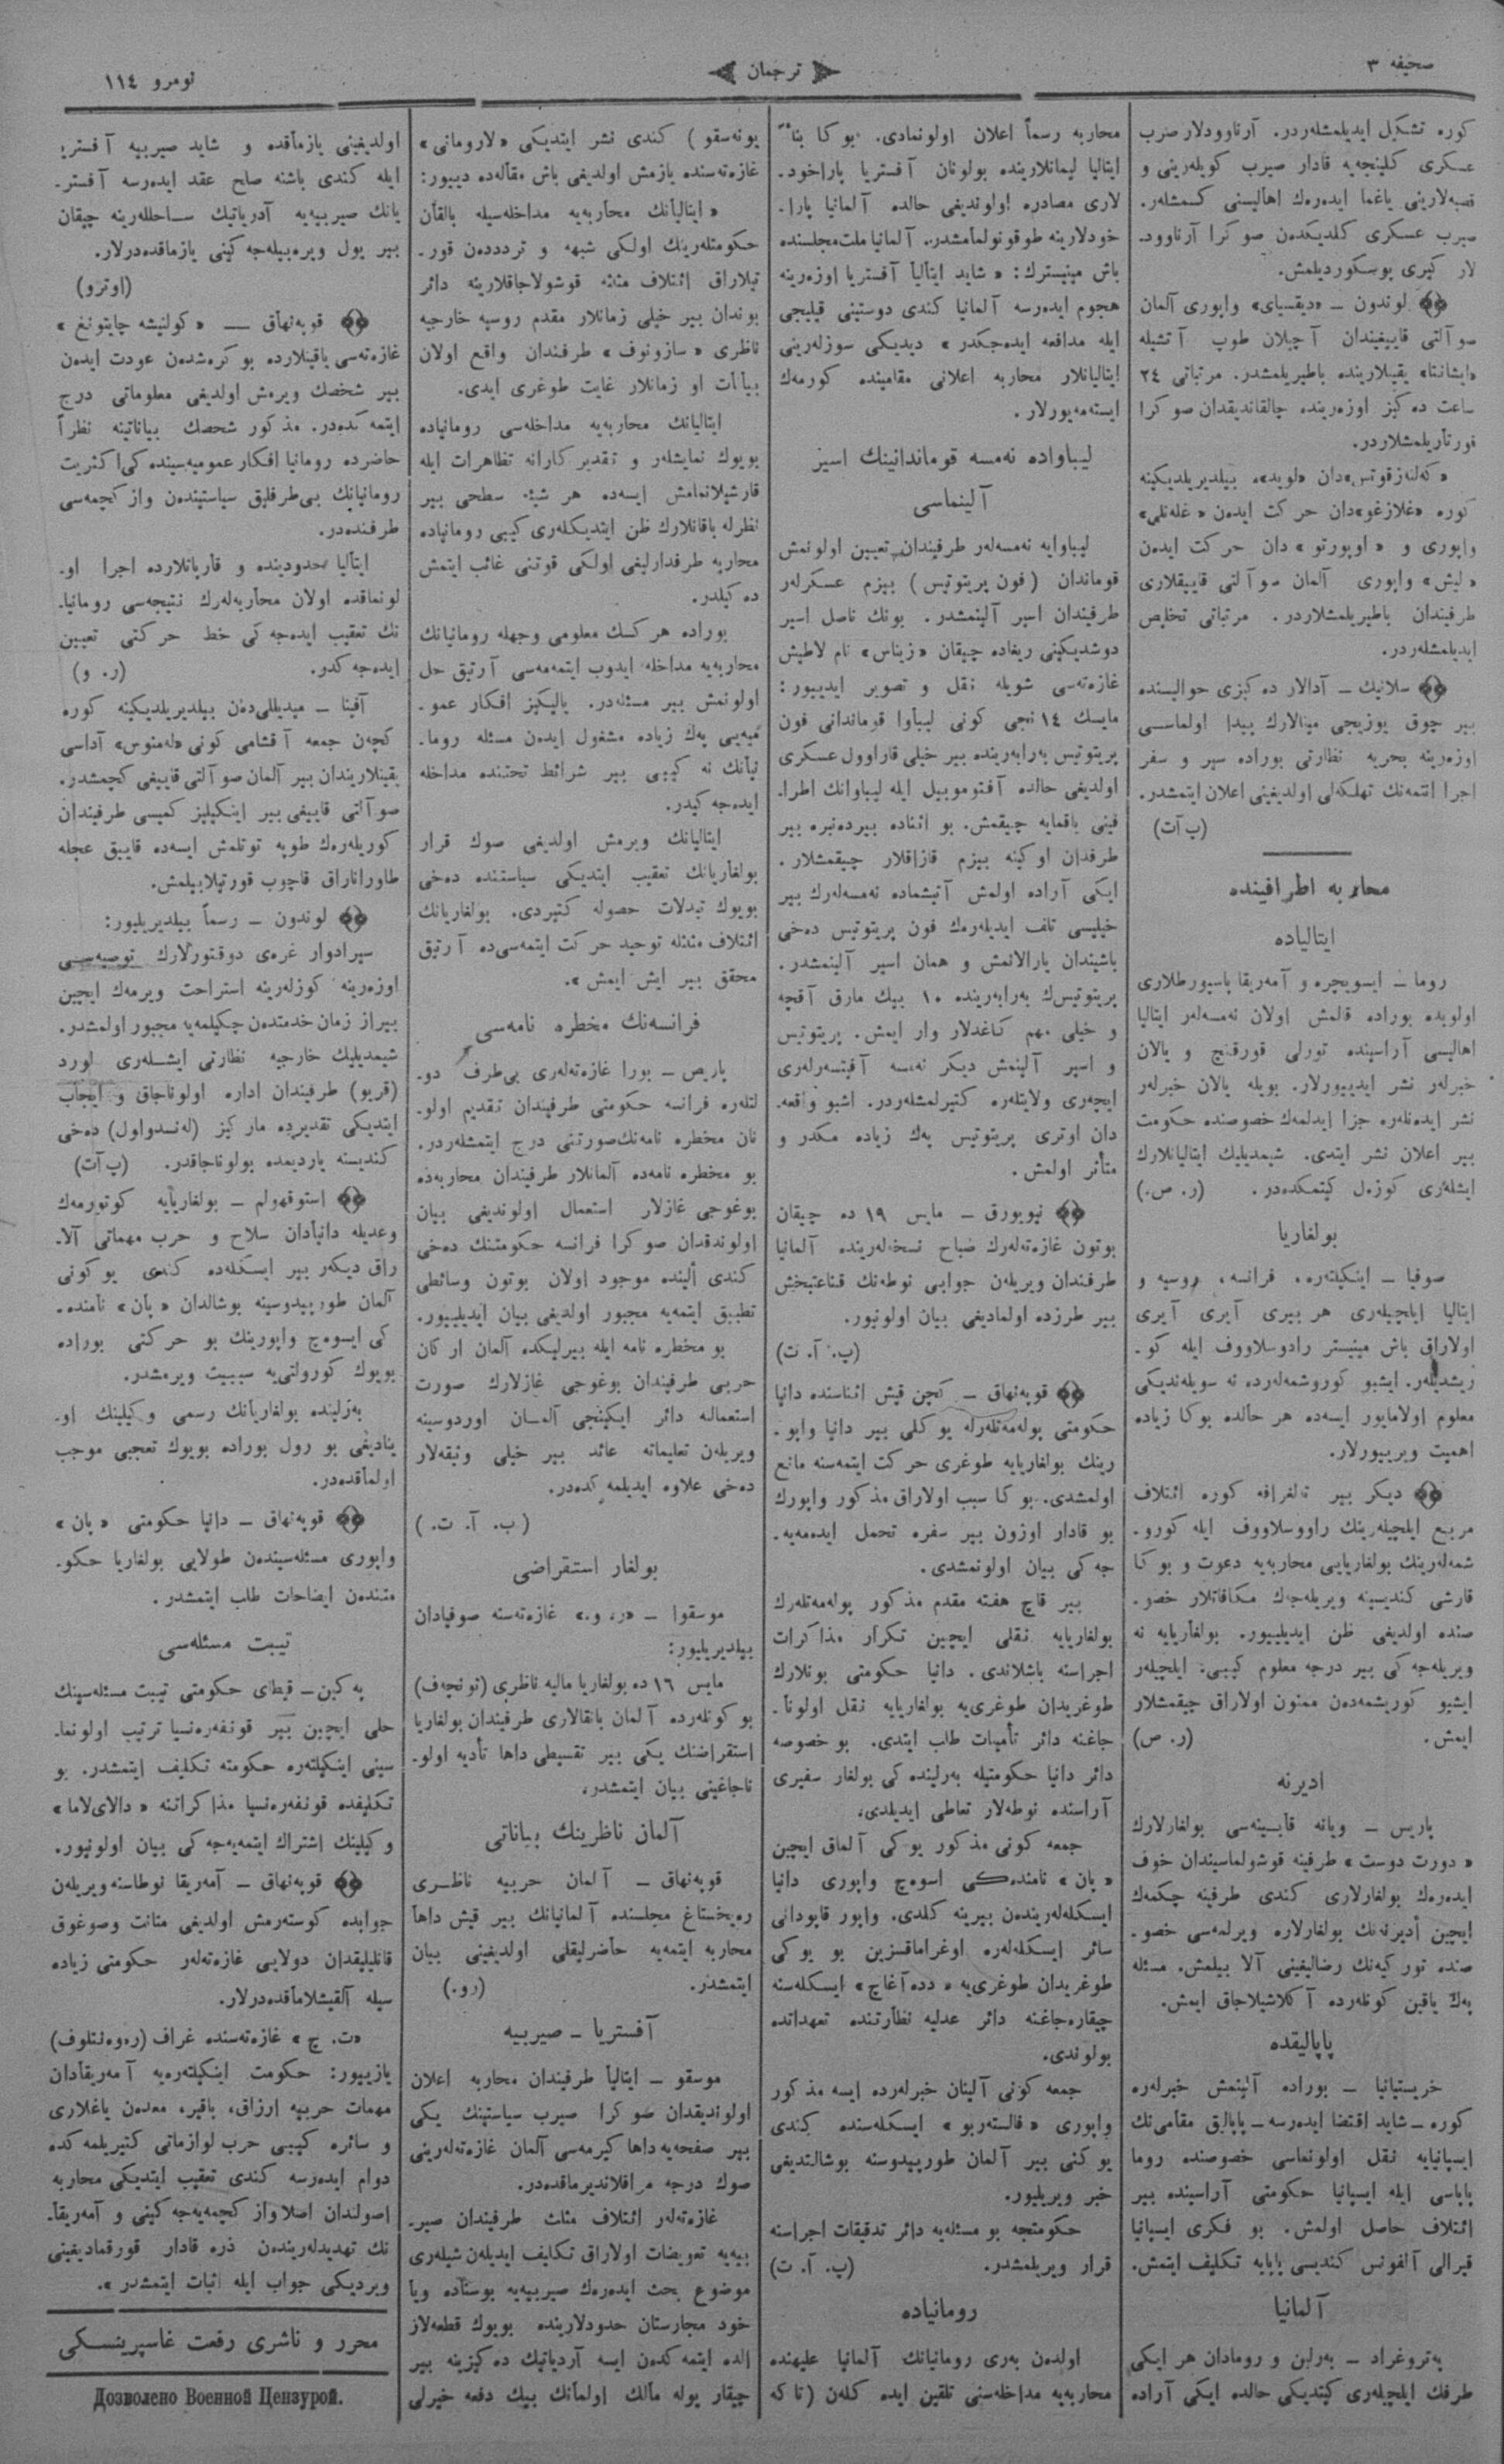 صحیفه ٣
ترجمان
نومرو ١١٤
كوره تشكیل ایدیلمشلەردر. آرناوودلار صرب
عسكری كلینجەیه قادار صیرب كویلەرینی و
قصبەلارینی یاغما ایدەرەك اهالیسنی كسمشلەر.
صیرب عسكری كلدیكدن صوكرا آرناوود-
لار كیری پوسكوردیلمش.
لوندون – «دیقسیای» واپوری آلمان
صو آلتی قاییغیندان آچیلان طوپ آتشیله
یقینلارینده باطیریلمشدر. مرتباتی ٢٤
ساعت دەكیز اوزەرینده چالقاندیقدان صوكرا
قورتاریلمشلاردر.
دان «لوید»، بیلدیریلدیكینه
كوره «غلازغو»دان حركت ایدەن
واپوری و «اوپورتو» دان حركت ایدەن
واپوری آلمان صو آلتی قاییقلاری
طرفیندان باطیریلمشلاردر. مرتباتی تخلیص
ایدیلمشلەردر.
سلانیك – آدالار دەكزی حوالیسنده
بیر چوق یوزیجی مینالارك پیدا اولماسی
اوزەرینه بحریه نظارتی بوراده سیر و سفر
اجرا ایتمەنك تهلكەلی اولدیغینی اعلان ایتمشدر.
(پ آت)
محاربه اطرافینده
ایتالیاده
روما – ایسویچره و آمەریقا پاسپورطلاری
اولوبده بوراده قالمش اولان نەمسەلەر ایتالیا
اهالیسی آراسینده تورلی قورقنج و یالان
خبرلەر نشر ایدییورلار. بویله یالان خبرلەر
نشر ایدەنلەره جزا ایدلمەك خصوصنده حكومت
بیر اعلان نشر ایتدی. شیمدیلیك ایتالیانلارك
ایشلەری كوزەل كیتمكدەدر. (ر. ص.)
بولغاریا
صوفیا – اینكیلتەره، فرانسه، روسیه و
ایتالیا ایلچیلەری هر بیری آیری آیری
اولاراق باش مینیستر رادوسلاووف ایله كو-
ریشدیلەر. ایشبو كوروشمەلەرده نه سویلەندیكی
معلوم اولامایور ایسەده هر حالده بوكا زیاده
اهمیت ویرییورلار.
دیكر بیر تلغرافه كوره ائتلاف
مربع ایلچیلەرینك رادوسلاووف ایله كورو-
شمەلەرینك بولغاریایی محاربەیه دعوت و بوكا
قارشی كندیسینه ویریلەجەك مكافاتلار خصو-
صنده اولدیغی ظن ایدیلییور. بولغاریایه نه
ویریلەجەكی بیر درجه معلوم كیبی: ایلچیلەر
ایشبو كوریشمەدەن ممنون اولاراق چیقمشلار
ایمش. (ر. ص)
ادیرنه
پاریس – ویانه قابینەسی بولغارلارك
«دورت دوست» طرفینه قوشولماسیندان خوف
ایدەرەك بولغارلاری كندی طرفینه چكمەك
ایچین أدیرنەنك بولغارلاره ویرلمەسی خصو-
صنده توركیەنك رضالیغینی آلا بیلمش. مسئله
پەك یاقین كونلەرده آكلاشیلاجاق ایمش.
پاپالیقده
خریستیانیا – بوراده آلینمش خبرلەره
كوره – شاید اقتضا ایدەرسه – پاپالق مقامی‌نك
ایسپانیایه نقل اولونماسی خصوصنده روما
پاپاسی ایله ایسپانیا حكومتی آراسینده بیر
ائتلاف حاصل اولمش. بو فكری ایسپانیا
قیرالی آلفونس كندیسی پاپایه تكلیف ایتمش.
آلمانیا
پەتروغراد – بەرلین و رومادان هر ایكی
طرفك ایلچیلەری كیتدیكی حالده ایكی آراده
محاربه رسماً اعلان اولونمادی. بوكا بناءً
ایتالیا لیمانلارینده بولونان آفستریا پاراخود-
لاری مصادره اولوندیغی حالده آلمانیا پارا-
خودلارینه طوقونولمامشدر. آلمانیا ملت مجلسنده
باش مینیسترك: «شاید ایتالیا آفستریا اوزەرینه
هجوم ایدەرسه آلمانیا كندی دوستینی قیلیجی
ایله مدافعه ایدەجكدر» دیدیكی سوزلەرینی
ایتالیانلار محاربه اعلانی مقامینده كورمەك
ایستەمەیورلار.
لیباواده نەمسه قوماندانینك اسیر
آلینماسی
لیباوایه نەمسەلەر طرفیندان تعیین اولونمش
قوماندان (فون پریتوتیس) بیزم عسكرلەر
طرفیندان اسیر آلینمشدر. بونك ناصل اسیر
دوشدیكینی ریغاده چیقان «زیناس» نام لاطیش
غازەتەسی شویله نقل و تصویر ایدییور:
مایسك ١٤ نجی كونی لیباوا قوماندانی فون
پریتوتیس بەرابەرینده بیر خیلی قاراوول عسكری
اولدیغی حالده آفتوموبیل ایله لیباوانك اطرا-
فینی باقمایه چیقمش. بو اثناده بیردەنبره بیر
طرفدان اوكینه بیزم قازاقلار چیقمشلار.
ایكی آراده اولمش آتیشماده نەمسەلەرك بیر
خیلیسی تلف ایدیلەرەك فون پریتوتیس دەخی
باشیندان یارالانمش و همان اسیر آلینمشدر.
پریتوتیس‌ك بەرابەرینده ١٠ بیك مارق آقچه
و خیلی مهم كاغدلار وار ایمش. پریتوتیس
و اسیر آلینمش دیكر نەمسه آفیتسەرلەری
ایچەری ولایتلەره كتیرلمشلەردر. اشبو واقعه-
دان اوتری پریتوتیس پەك زیاده مكدر و
متأثر اولمش.
نیویورق – مایس ١٩ ده چیقان
بوتون غازەتەلەرك صباح نسخەلەرینده آلمانیا
طرفندان ویریلەن جوابی نوطەنك قناعتبخش
بیر طرزده اولمادیغی بیان اولونیور.
(پ. آ. ت)
قوپەنهاق – كچن قیش اثناسنده دانیا
حكومتی پولەمەتلەرله یوكلی بیر دانیا واپو-
رینك بولغاریایه طوغری حركت ایتمەسنه مانع
اولمشدی. بوكا سبب اولاراق مذكور واپورك
بو قادار اوزون بیر سفره تحمل ایدەمەیه-
جەكی بیان اولونمشدی.
بیر قاچ هفته مقدم مذكور پولەمەتلەرك
بولغاریایه نقلی ایچین تكرار مذاكرات
اجراسنه باشلاندی. دانیا حكومتی بونلارك
طوغریدان طوغری‌یه بولغاریایه نقل اولونا-
جاغنه دائر تأمینات طلب ایتدی. بو خصوصه
دائر دانیا حكومتیله بەرلیندەكی بولغار سفیری
آراسنده نوطەلار تعاطی ایدیلدی.
جمعه كونی مذكور یوكی آلماق ایچین
«پان» نامندەكی اسوەچ واپوری دانیا
ایسكلەلەریندەن بیرینه كلدی. واپور قاپودانی
سائر ایسكلەلەره اوغراماقسزین بو یوكی
طوغریدان طوغری‌یه «دده آغاچ» ایسكلەسنه
چیقارەجاغنه دائر عدلیه نظارتنده تعهداتده
بولوندی.
جمعه كونی آلینان خبرلەرده ایسه مذكور
واپوری «فالستەربو» ایسكلەسنده كندی
یوكنی بیر آلمان طورپیدوسنه بوشالتدیغی
خبر ویریلیور.
حكومتجه بو مسئلەیه دائر تدقیقات اجراسنه
قرار ویریلمشدر. (پ. آ. ت)
رومانیاده
اولدن بەری رومانیانك آلمانیا علیهنده
محاربەیه مداخلەسنی تلقین ایده كلەن (تاكه
یونەسقو) كندی نشر ایتدیكی «لارومانی»
غازەتەسنده یازمش اولدیغی باش مقالەده دییور:
«ایتالیانك محاربەیه مداخلەسیله بالقان
حكومتلەرینك اولكی شبهه و ترددەن قور-
تیلاراق ائتلاف مثلثه قوشولاجاقلارینه دائر
بوندان بیر خیلی زمانلار مقدم روسیه خارجیه
ناظری «سازونوف» طرفندان واقع اولان
بیانات او زمانلار غایت طوغری ایدی.
ایتالیانك محاربەیه مداخلەسی رومانیاده
بویوك نمایشلەر و تقدیركارانه تظاهرات ایله
قارشیلانمامش ایسەده هر شیئه سطحی بیر
نظرله باقانلارك ظن ایتدیكلەری كیبی رومانیاده
محاربه طرفدارلیغی اولكی قوتنی غائب ایتمش
دەكیلدر.
بوراده هر كسك معلومی وجهله رومانیانك
محاربەیه مداخله ایدوب ایتمەمەسی آرتیق حل
اولونمش بیر مسئلەدر. یالیكیز افكار عمو-
میەیی پەك زیاده مشغول ایدەن مسئله روما-
نیانك نه كیبی بیر شرائط تحتنده مداخله
ایدەجەكیدر.
ایتالیانك ویرمش اولدیغی صوك قرار
بولغاریانك تعقیب ایتدیكی سیاستنده دەخی
بویوك تبدلات حصوله كتیردی. بولغاریانك
ائتلاف مثلثله توحید حركت ایتمەسی‌ده آرتیق
محقق بیر ایش ایمش».
فرانسەنك مخطره نامەسی
پاریص – بورا غازەتەلەری بی‌طرف دو-
لتلەره فرانسه حكومتی طرفیندان تقدیم اولو-
نان مخطره نامەنك صورتنی درج ایتمشلەردر.
بو مخطره نامەده آلمانلار طرفیندان محاربەده
بوغوجی غازلار استعمال اولوندیغی بیان
اولوندقدان صوكرا فرانسه حكومتنك دەخی
كندی ألینده موجود اولان بوتون وسائطی
تطبیق ایتمەیه مجبور اولدیغی بیان ایدیلییور.
بو مخطره نامه ایله بیرلیكده آلمان اركان
حربی طرفیندان بوغوجی غازلارك صورت
استعمالنه دائر ایكینجی آلمان اوردوسینه
ویریلەن تعلیماته عائد بیر خیلی وثیقەلار
دەخی علاوه ایدیلمەكدەدر.
(ب. آ. ت.)
بولغار استقراضی
موسقوا – «ر. و.» غازەتەسنه صوفیادان
بیلدیریلیور:
مایس ١٦ ده بولغاریا مالیه ناظری (تونچەف)
بو كونلەرده آلمان بانقالاری طرفیندان بولغاریا
استقراضنك یكی بیر تقسیطی داها تأدیه اولو-
ناجاغینی بیان ایتمشدر.
آلمان ناظرینك بیاناتی
قوپەنهاق – آلمان حربیه ناظری
رەیخستاغ مجلسنده آلمانیانك بیر قیش داها
محاربه ایتمەیه حاضرلیقلی اولدیغینی بیان
ایتمشدر. (رو.)
آفستریا – صیربیه
موسقو – ایتالیا طرفیندان محاربه اعلان
اولوندیقدان صوكرا صیرب سیاستینك یكی
بیر صفحەیه داها كیرمەسی آلمان غازەتەلەرینی
صوك درجه مراقلاندیرماقدەدر.
غازەتەلەر ائتلاف مثلث طرفیندان صیر-
بیەیه تعویضات اولاراق تكلیف ایدیلەن شیلەری
موضوع بحث ایدەرەك صیربیەیه بوسناده ویا
خود مجارستان حدودلارینده بویوك قطعەلار
الده ایتمەكدەن ایسه آدریاتیك دەكیزینه بیر
چیقار یوله مالك اولمانك بیك دفعه خیرلی
اولدیغینی یازماقده و شاید صیربیه آفستریا
ایله كندی باشنه صلح عقد ایدەرسه آفستر-
یانك صیربیەیه آدریاتیك ساحللەرینه چیقان
بیر یول ویرەبیلەجەكینی یازماقدەدرلار.
(اوترو)
قوپەنهاق – «كولنیشه چایتونغ»
غازەتەسی یاقینلارده بوكرەشدەن عودت ایدەن
بیر شخصك ویرمش اولدیغی معلوماتی درج
ایتمەكدەدر. مذكور شخصك بیاناتینه نظراً
حاضرده رومانیا افكار عمومیەسیندەكی اكثریت
رومانیانك بی‌طرفلیق سیاستیندەن وازكچمەسی
طرفندەدر.
ایتالیا حدودینده و قارپاتلارده اجرا او-
لونماقده اولان محاربەلەرك نتیجەسی رومانیا-
نك تعقیب ایدەجەكی خط حركتی تعیین
ایدەجەكدر. (ر. و)
آفینا – میدیللی‌دەن بیلدیریلدیكینه كوره
كچەن جمعه آقشامی كونی «لەمنوس» آداسی
یقینلاریندان بیر آلمان صو آلتی قاییغی كچمشدر.
صو آلتی قاییغی بیر اینكیلیز كمیسی طرفیندان
كوریلەرەك طوپه توتلمش ایسەده قاییق عجله
طاورناراق قاچوب قورتیلابیلمش.
لوندون – رسماً بیلدیریلیور:
سیرادوار غرەی دوقتورلارك توصیەسی
اوزەرینه كوزلەرینه استراحت ویرمەك ایچین
بیراز زمان خدمتدەن چكیلمەیه مجبور اولمشدر.
شیمدیلیك خارجیه نظارتی ایشلەری لورد
(قریو) طرفیندان اداره اولوناجاق و ایجاب
ایتدیكی تقدیرده ماركیز (لەنسدواول) دەخی
كندیسنه یاردیمده بولوناجاقدر. (پ آت)
استوقهولم – بولغاریایه كوتورمەك
وعدیله دانیادان سلاح و حرب مهماتی آلا-
راق دیكەر بیر ایسكلەده كندی یوكونی
آلمان طورپیدوسینه بوشالدان «پان» نامنده-
كی ایسوەچ واپورینك بو حركتی بوراده
بویوك كورولتی‌یه سببیت ویرمشدر.
بەرلینده بولغاریانك رسمی وكیلینك او-
ینادیغی بو رول بوراده بویوك تعجبی موجب
اولماقدەدر.
قوپەنهاق – دانیا حكومتی «پان»
واپوری مسئلەسیندەن طولایی بولغاریا حكو-
متندەن ایضاحات طلب ایتمشدر.
تیبت مسئلەسی
پەكین – قیطای حكومتی تیبت مسئلەسینك
حلی ایچین بیر قونفەرەنسیا ترتیب اولونما-
سینی اینكیلتەره حكومته تكلیف ایتمشدر. بو
تكلیفده قونفەرەنسیا مذاكراتنه «دالای‌لاما»
وكیلینك إشتراك ایتمەیەجەكی بیان اولونیور.
قوپەنهاق – آمەریقا نوطاسنه ویریلەن
جوابده كوستەرمش اولدیغی متانت وصوغوق
قانلیلیقدان دولایی غازەتەلەر حكومتی زیاده
سیله آلقیشلاماقدەدرلار.
«ت. چ» غازەتەسنده غراف (رەوەنتلوف)
یازییور: حكومت اینكیلتەرەیه آمەریقادان
مهمات حربیه ارزاق، باقیر، معدەن یاغلاری
و سائره كیبی حرب لوازماتی كتیریلمەكده
دوام ایدەرسه كندی تعقیب ایتدیكی محاربه
اصولندان اصلا وازكچمەیەجەكینی و آمەریقا-
نك تهدیدلەریندەن ذره قادار قورقمادیغینی
ویردیكی جواب ایله اثبات ایتمشدر».
محرر و ناشری رفعت غاسپرینسكی
Дозволено Военной Цензурой.